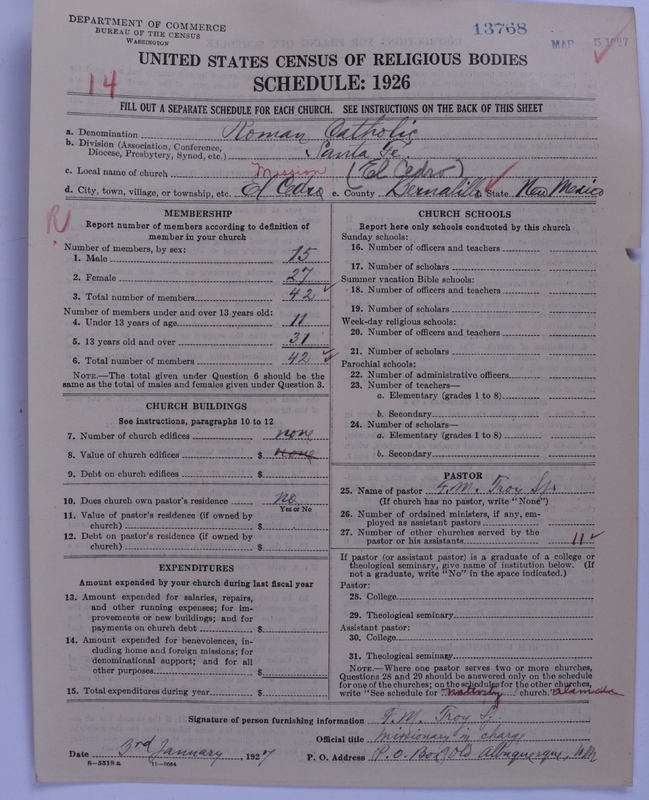 DEPARTMENT OF COMMERCE
BUREAU OF THE CENSUS
WASHINGTON
13768
MAR 5 1927
UNITED STATES CENSUS OF RELIGIOUS BODIES
14
SCHEDULE: 1926
FILL OUT A SEPARATE SCHEDULE FOR EACH CHURCH. SEE INSTRUCTIONS ON THE BACK OF THIS SHEET
a. Denomination Roman Catholic
b. Division (Association, Conference, Diocese, Presbytery, Synod, etc.) Santa Fe
c. Local name of church Mission (El Cedro)
d. City, town, village, or township, etc. El Cedro e. County Bernalillo State New Mexico
R
MEMBERSHIP
Report number of members according to definition of
member in your church
Number of members, by sex:
1. Male 15
2. Female 27
3. Total number of members 42
Number of members under and over 13 years old:
4. Under 13 years of age 11
5. 13 years old and over 31
6. Total number of members 42
NOTE.—The total given under Question 6 should be the
same as the total of males and females given under Question 3.
CHURCH BUILDINGS
See instructions, paragraphs 10 to 12
7. Number of church edifices none
8. Value of church edifices $ none
9. Debt on church edifices $
10. Does church own pastor's residence no
Yes or No
11. Value of pastor's residence (if owned by
church) $
12. Debt on pastor's residence (if owned by
church) $
EXPENDITURES
Amount expended by your church during last fiscal year
13. Amount expended for salaries, repairs,
and other running expenses; for im-
provements or new buildings; and for
payments on church debt $
14. Amount expended for benevolences, in-
cluding home and foreign missions; for
denominational support; and for all
other purposes $
15. Total expenditures during year $
CHURCH SCHOOLS
Report here only schools conducted by this church
Sunday schools:
16. Number of officers and teachers
17. Number of scholars
Summer vacation Bible schools:
18. Number of officers and teachers
19. Number of scholars
Week-day religious schools:
20. Number of officers and teachers
21. Number of scholars
Parochial schools:
22. Number of administrative officers
23. Number of teachers—
a. Elementary (grades 1 to 8)
b. Secondary
24. Number of scholars—
a. Elementary (grades 1 to 8)
b. Secondary
PASTOR
25. Name of pastor F. M. Troy Sj.
(If church has no pastor, write "None")
26. Number of ordained ministers, if any, em-
ployed as assistant pastors
27. Number of other churches served by the
pastor or his assistants 11
If pastor (or assistant pastor) is a graduate of a college or
theological seminary, give name of institution below. (If
not a graduate, write "No" in the space indicated.)
Pastor:
28. College
29. Theological seminary
Assistant pastor:
30. College
31. Theological seminary
NOTE.—Where one pastor serves two or more churches,
Questions 28 and 29 should be answered only on the schedule
for one of the churches; on the schedules for the other churches,
write "See schedule for Nativity church." Alameda
Signature of person furnishing information F. M. Troy Sj.
Official title Missionary in charge
Date 3rd January, 1927 P. O. Address P. O. Box, Old Albuquerque, NM
8-5318 a 11-9084